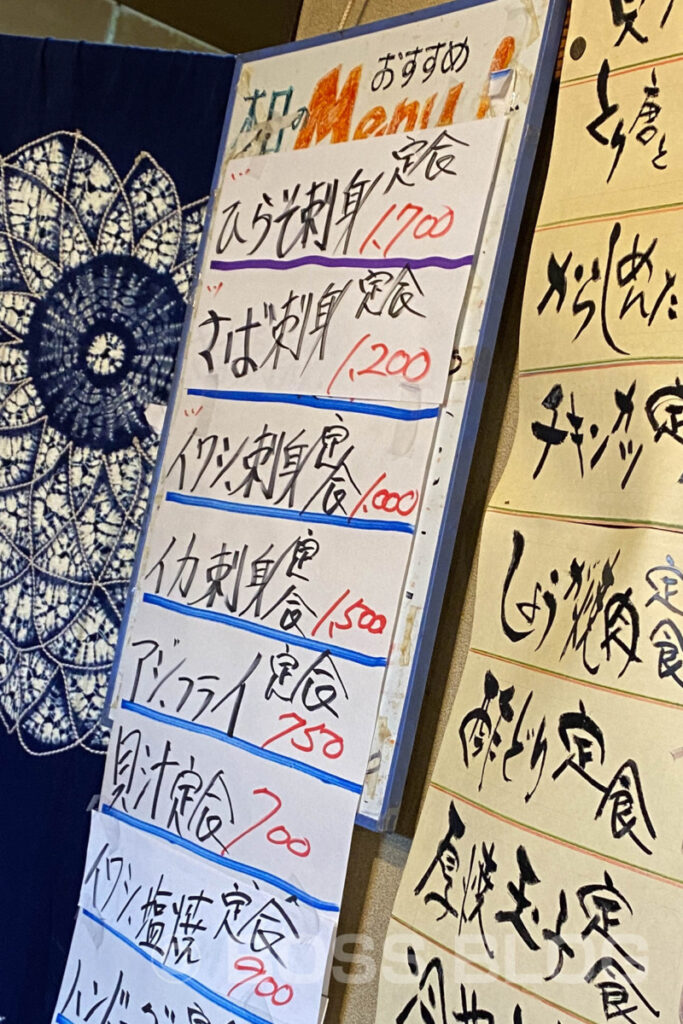 おすすめ
本日のMenu!
ひらそ刺身定食
1,700
さば刺身定食
1,200
イワシ刺身定食
1,000
イカ刺身定食
1,500
アジフライ定食
750
貝汁定食
700
イワシ塩焼定食
900
ハンバーグ定食
とり唐と
からしめんた
チキンカツ定
しょうが焼肉定食
酢どり定食
厚焼玉子定食
BOSS BLOG